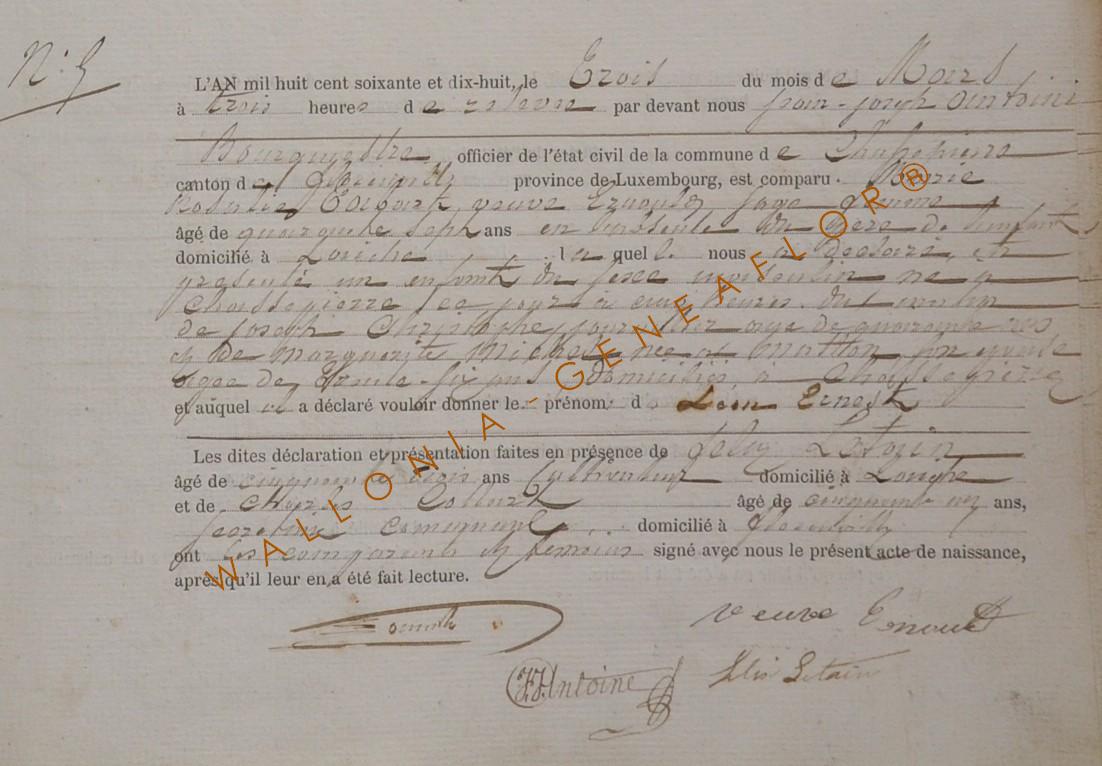 N° 5
L'AN mil huit cent soixante et dix-huit, le Trois du mois de Mars
à trois heures de relevée par devant nous Jean-Joseph Antoine
Bourguestre officier de l'état civil de la commune de Chassepierre
canton de Florenville province de Luxembourg, est comparu Marie
Rosalie veuve Ernould sage femme
âgé de quarante sept ans en présence du père de l'enfant
domicilié à Laiche laquelle nous a déclaré, et
présenté un enfant du sexe masculin né à
Chassepierre ce jour à heures du matin
de Joseph Christophe âgé de quarante
et de Marguerite Michel née à Matton
âgée de trente-six ans domiciliés à Chassepierre
et auquel il a déclaré vouloir donner le prénom de Léon Ernest
Les dites déclaration et présentation faites en présence de
âgé de cinquante trois ans Cultivateur domicilié à Laiche
et de Charles Collard âgé de cinquante ans,
Secrétaire Communal domicilié à Florenville
ont les comparants et témoins signé avec nous le présent acte de naissance,
après qu'il leur en a été fait lecture.
veuve Ernould
JJ Antoine
WALLONIA-GENEAFLOR®